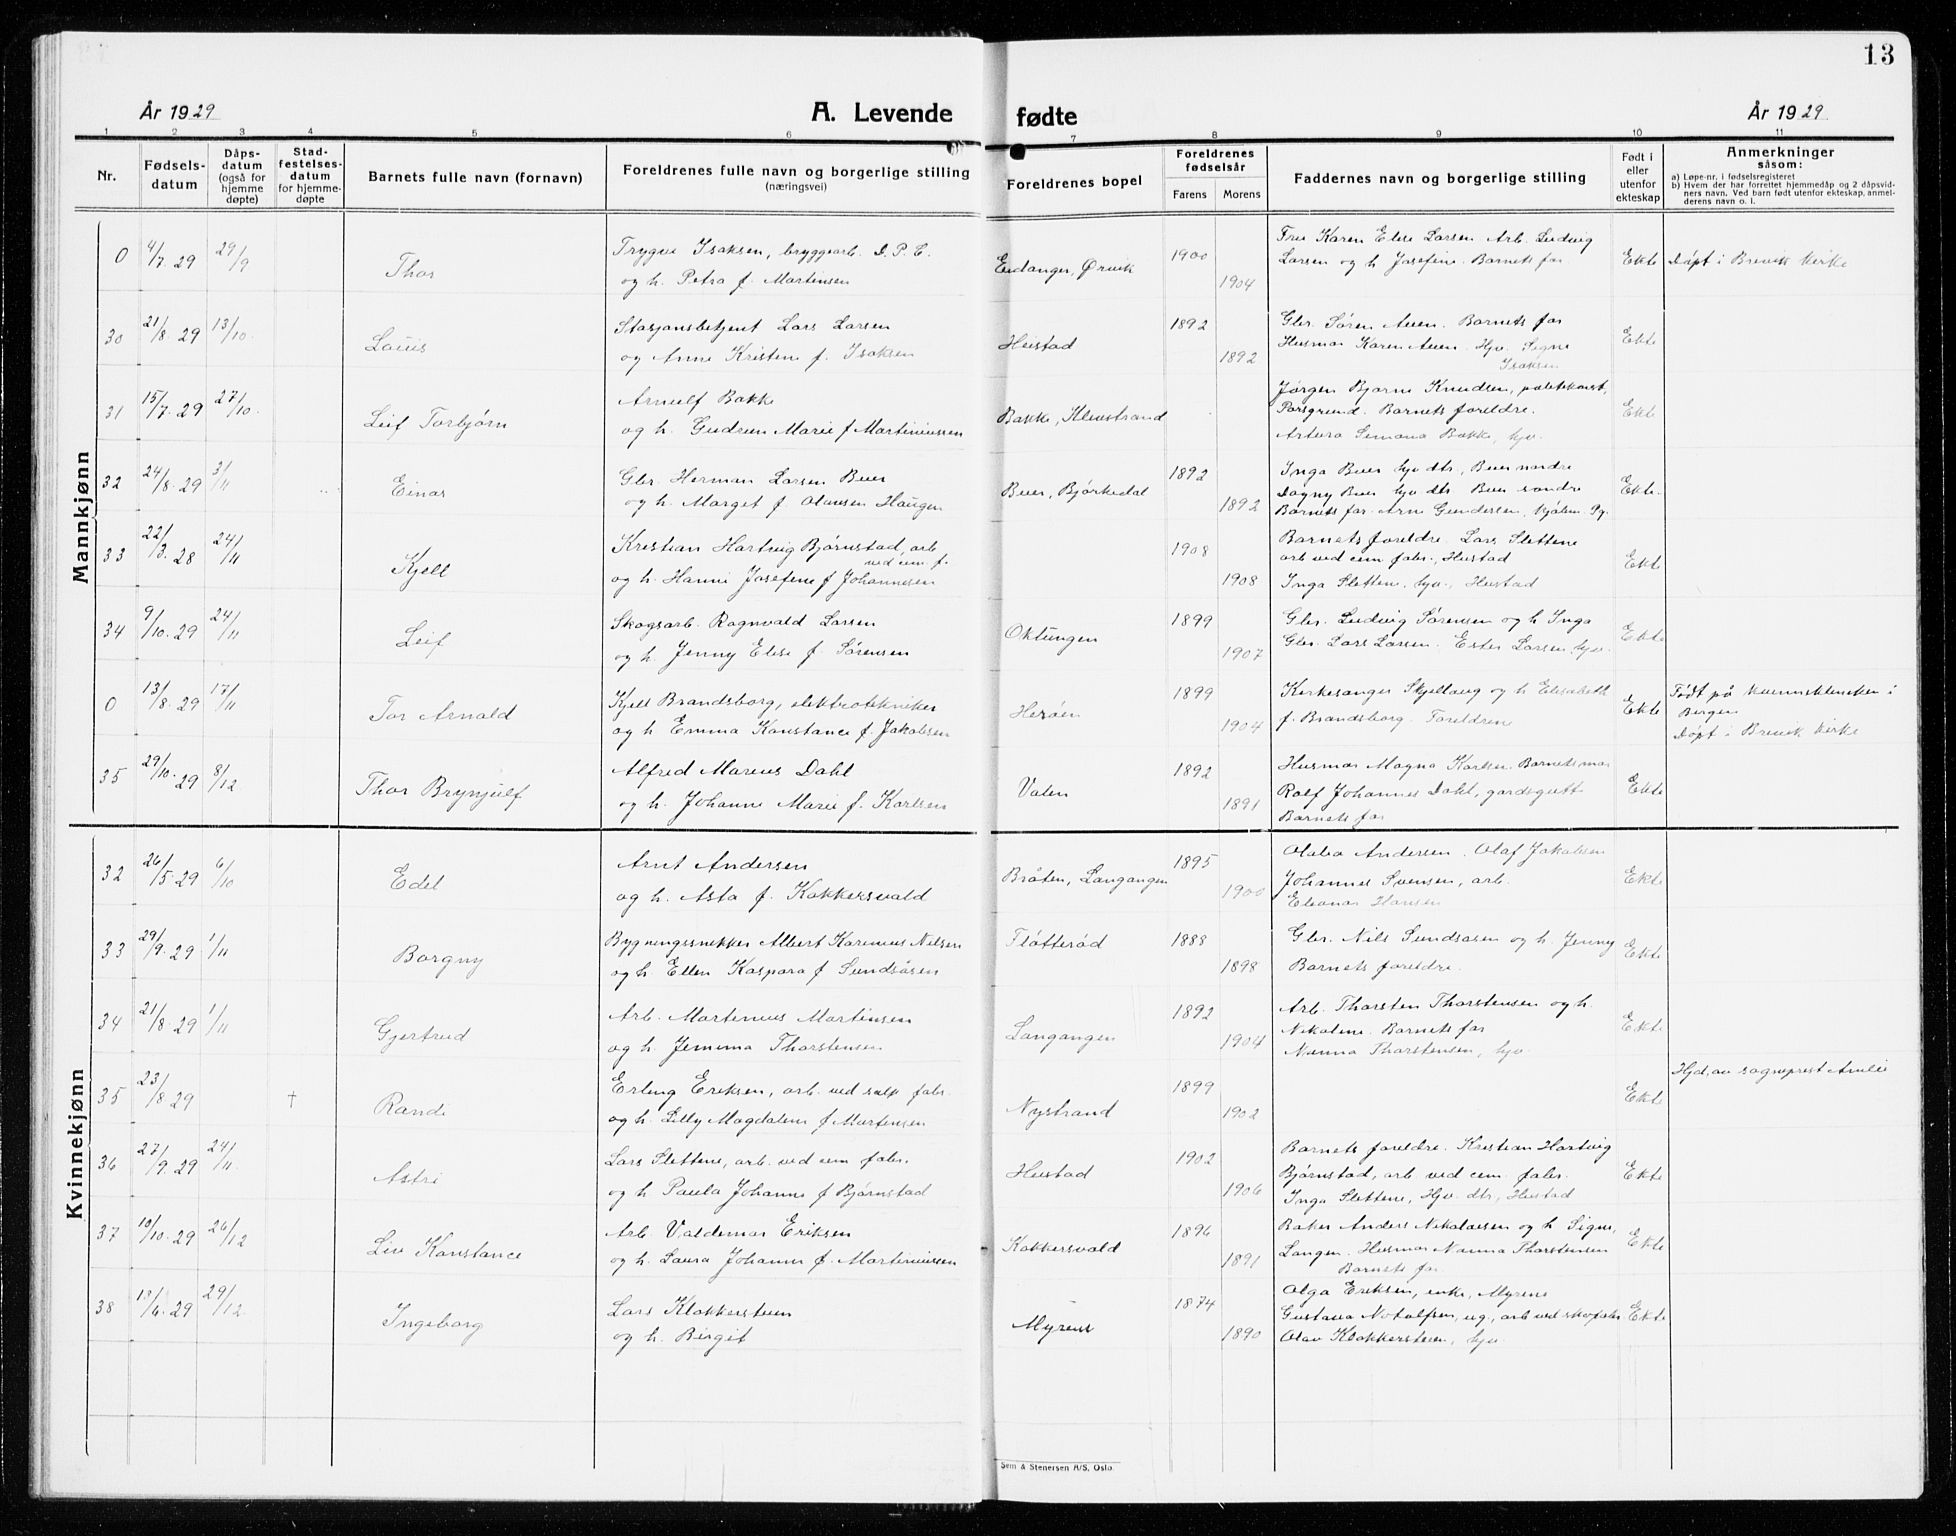 13
År 1929
A. Levende fødte
År 1929
1 2 3 4 5 6 7 8 9 10 11
Nr.
Fødsels-
datum
Dåps-
datum
(også for
hjemme
døpte)
Stad-
festelses-
datum
for hjemme-
døpte
Barnets fulle navn (fornavn)
Foreldrenes fulle navn og borgerlige stilling
(næringsvei)
Foreldrenes bopel
Foreldrenes
fødselsår
Farens Morens
Faddernes navn og borgerlige stilling
Født i
eller
utenfor
ekteskap
Anmerkninger
såsom:
a) Løpe-nr. i fødselsregisteret
b) Hvem der har forrettet hjemmedåp og 2 dåpsvid-
ners navn. Ved barn født utenfor ekteskap, anmel-
derens navn o. l.
Mannkjønn
0 4/7. 29 29/9 Thor
Trygve Isaksen, bryggearb. D. P. C.
og h. Petra f. Martinsen
Eidanger, Ørvik 1900 1904
Fru Karen Elise Larsen Arb. Ludvig
Larsen og h Josefine. Barnets far.
Ekte Døpt i Brevik kirke
30 21/8. 29 13/10. Louis
Stasjonsbetjent Lars Larsen
og Anne Kristine f. Isaksen
Heistad 1892 1892
Gbr. Søren Auen. Barnets far
Husmor Karen Auen. Hjv. Signe
Isaksen
Ekte
31 15/7. 29 27/10. Leif Torbjørn
Arnulf Bakke
og h. Gudrun Marie f Martiniussen
Bakke, Klevstrand
Jørgen Bjarne Knudsen, politikonst,
Porsgrund. Barnets foreldre.
Artura Simona Bakke, hjv.
Ekte
32 24/8. 29 3/11 Einar
Gbr. Herman Larsen Buer
og h. Marget f. Olausen Haugen
Buer, Bjørkedal 1892 1892
Inga Buer hjv dtr., Buer nordre
Dagny Buer hjv dtr. Buer søndre
Barnets far. Arne Gundersen, Kjølen. Pg.
Ekte.
33 22/3. 28 24/11 Kjell
Kristian Hartvig Bjørnstad, arb
ved cem. f.
og h. Hanni Josefine f Johannesen
1908 1908
Barnets foreldre. Lars Slettene
arb ved cem fabr., Heistad
Inga Slettene, hjv., Heistad
Ekte
34 9/10. 29 24/11 Leif
Skogsarb. Ragnvald Larsen
og h. Jenny Elise f. Sørensen
Oktungen 1899 1907
Gbr. Ludvig Sørensen og h Inga
Gbr. Lars Larsen. Ester Larsen, hjv.
Ekte
0 13/8. 29 17/11 Tor Arnold
Kjell Brandsborg, elektrotekniker
og h Emma Konstance f. Jakobsen
Herøen 1899 1904
Kirkesanger Skjellaug og h Elisabeth
f. Brandsborg. Foreldrene
Ekte
Født på kvinneklinikken i
Bergen
Døpt i Brevik kirke
35 29/10. 29 8/12 Thor Brynjulf
Alfred Marius Dahl
og h. Johanne Marie f. Karlsen
Valen 1892 1891
Husmor Magna Karlsen. Barnets mor
Rolf Johannes Dahl, gardsgutt
Barnets far
Ekte
Kvinnekjønn
32 26/5. 29 6/10 Edel
Arnt Andersen
og h. Asta f. Kokkersvold
Bråten, Langangen 1895 1900
Olaba Andersen. Olaf Jakobsen
Johannes Svensen, arb.
Eleonor Hansen
Ekte
33 29/9. 29 1/11 Borgny
Bygningssnekker Albert Karenius Nilsen
og h Ellen Kaspara f Sundsåsen
Flåtterød 1888 1898
Gbr. Nils Sundsåsen og h. Jenny
Barnets foreldre.
Ekte
34 21/8. 29 1/11 Gjertrud
Arb. Martinius Martinsen
og h. Jemima Thorstensen
Langangen 1892 1904
Arb. Thorsten Thorstensen og h.
Nikoline. Barnets far
Nanna Thorstensen, hjv.
Ekte
35 23/8. 29 † Randi
Erling Eriksen, arb. ved salp. fabr.
og h. Lilly Magdalene f Martinsen
Nystrand 1899 1902
Ekte Hjd. av sogneprest Amlie
36 27/9. 29 24/11. Astri
Lars Slettene, arb. ved cem fabr.
og h. Paula Johanne f Bjørnstad
Heistad 1902 1906
Barnets foreldre. Kristian Hartvig
Bjørnstad, arb ved cem. fabr.
Inga Slettene, Hjv. dtr, Heistad
Ekte
37 10/10. 29 26/12 Liv Konstance
Arb Valdemar Eriksen
og h. Laura Johanne f. Martiniussen
Kokkersvold 1896 1891
Baker Anders Nikolaisen og h Signe,
Langen. Husmor Nanna Thorstensen
Barnets far.
Ekte
38 18/6. 29 29/12 Ingeborg
Lars Klokkersteen
og h. Birgit
Myrene 1874 1890
Olga Eriksen, enke, Myrene
Gustava Notolfsen, ug., arb ved skofabr
Olav Klokkersteen, hjv.
Ekte
Sem & Stenersen A/S, Oslo.